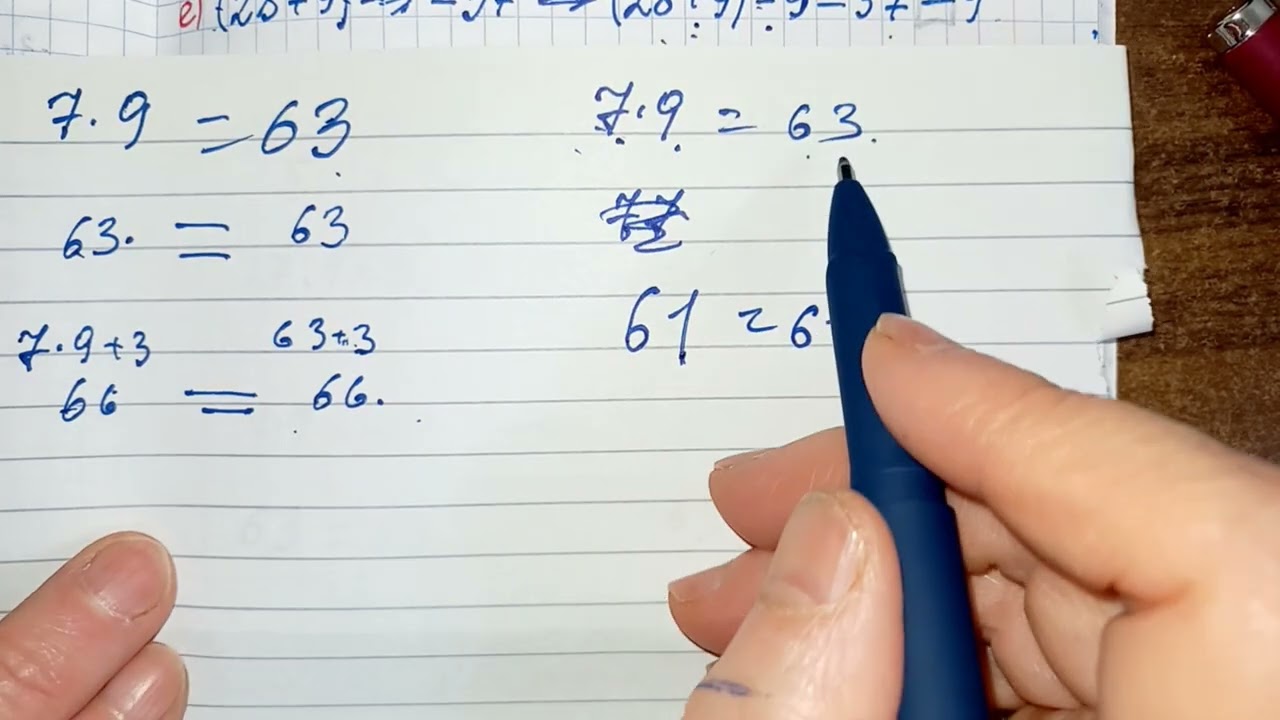 e)
7.9 = 63
63. = 63
7.9+3 63+3
66 = 66.
7.9 = 63.
61 = 6